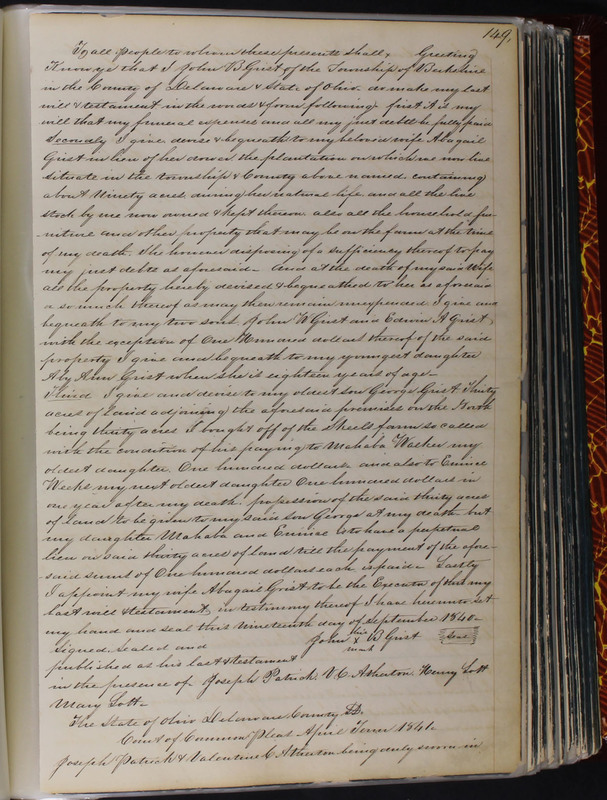 149.
To all People to whom these presents shall, Greeting
Know ye that I John B Grist of the Township of Berkshire
in the County of Delaware & State of Ohio. do make my last
will & testament in the words & form following. first it is my
will that my funeral expenses and all my just debts be fully paid
Secondly I give devise & bequeath to my beloved wife Abagail
Grist in lieu of her dower the plantation on which we now live
situate in the township & County above named. containing
about Ninety acres during her natural life and all the live
stock by me now owned & kept thereon. also all the household fur-
-niture and other property that may be on the farm at the time
of my death. She however disposing of a sufficiency thereof to pay
my just debts as aforesaid - And at the death of my said Wife
all the property hereby devised & bequeathed to her as aforesaid
or so much thereof as may then remain unexpended I give and
bequeath to my two sons John W Grist and Edwin A Grist,
with the exception of One Hundred dollars thereof of the said
property I give and bequeath to my youngest daughter
Aby Ann Grist when she is eighteen years of age -
Third I give and devise to my oldest son George Grist Thirty
acres of Land adjoining the aforesaid premises on the North
being thirty acres I bought off of the Skeels farm so called
with the condition of his paying to Mahala Walker my
oldest daughter One hundred dollars and also to Eunice
Weeks my next oldest daughter One hundred dollars in
one year after my death. possession of the said thirty acres
of Land to be given to my said son George at my death but
my daughter Mahala and Eunice is to have a perpetual
lien on said thirty acres of land till the payment of the afore-
-said sums of One hundred dollars each is paid - Lastly
I appoint my wife Abagail Grist to be the Executor of this my
last will & testament, in testimony thereof I have hereunto set
my hand and seal this Nineteenth day of September 1840 -
Signed Sealed and John his x mark W Grist Seal
published as his last & testament
in the presence of Joseph Patrick V. C. Atherton Henry Lott
Mary Lott -
The State of Ohio Delaware County SS.
Court of Common Pleas April Term 1841.
Joseph Patrick & Valentine C Atherton being duly sworn in